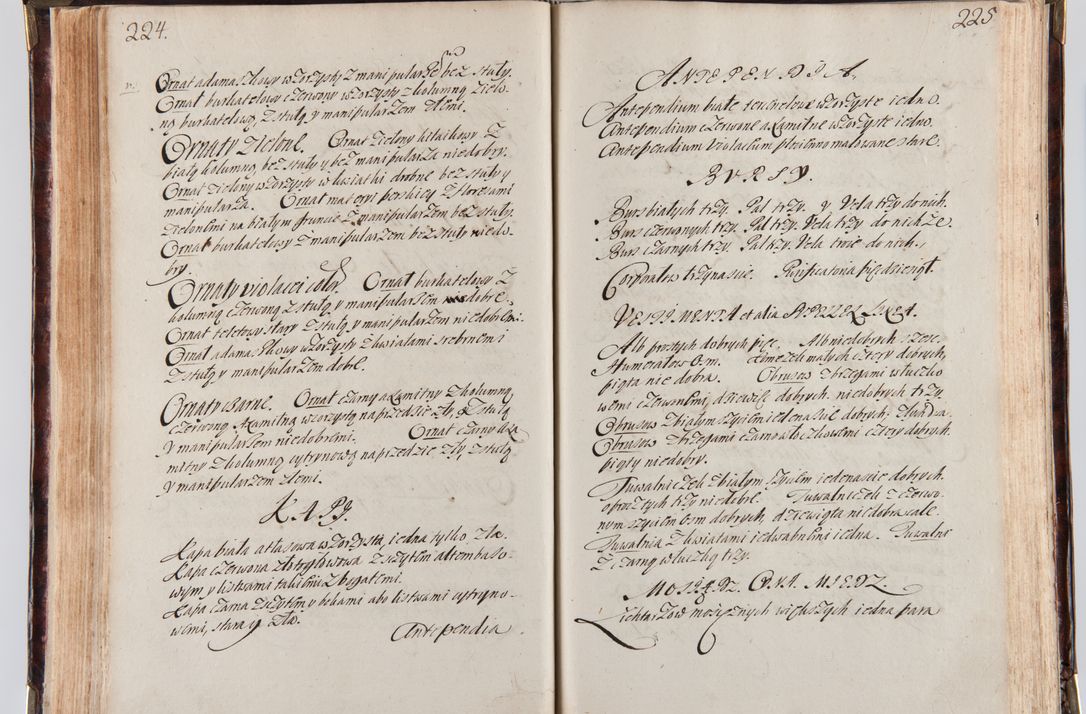 224.
Ornat adamaszkowy wzorzysty z manipularzem bez stuły.
Ornat burkatelowy czerwony wzorzysty z kolumną zielo-
ną burkatelową, z stułą y manipularzem złemi.
Ornaty Zielone. Ornat zielony kitaikowy z
białą kolumną, bez stuły y bez manipularza niedobry.
Ornat zielony wzorzysty w kwiatki drobne bez stuły y
manipularza. Ornat materyi perskiey z floresami
zielonemi na białym gruncie z manipularzem bez stuły.
Ornat burkatelowy z manipularzem bez stuły niedo-
bry.
Ornaty violacei color. Ornat burkatelowy z
kolumną czerwoną z stułą y manipularzem dobre.
Ornat teletowy stary z stułą y manipularzem niedobrem.
Ornat adamaszkowy wzorzysty z kwiatami srebrnemi
z stułą y manipularzem dobre.
Ornaty czarne. Ornat czarny axamitny z kolumną
czerwoną axamitną wzorzystą na przedzie zły, z stułą
y manipularzem niedobremi. Ornat czarny axa
mitny z kolumną cytrynową na przedzie zły, z stułą
y manipularzem złemi.
KAPY.
Kapa biała atłasowa wzorzysta, iedna tylko zła.
Kapa czerwona złotogłowowa z szczytem altembaso-
wym y listwami takiemiz bogatemi.
Kapa czarna z szczytem y bokami abo listwami cytryno-
wemi, stara y zła.
Antependia
225
ANTEPENDYA.
Antependium białe teuchelowe wzorzyste iedno.
Antependium czerwone axamitne wzorzyste iedno.
Antependium violaceum płócienno malowane stare.
BURSY.
Burs białych trzy. Pal trzy. y Vela trzy do nich.
Burs czerwonych trzy. Pal trzy. Vela trzy do nichże.
Burs czarnych trzy. Pal trzy. Vela troie do nich.
Corporałow trzynascie. Purificatoria pięcdziesiąt.
VESTIMENTA et alia APPAR. Linea.
Alb prostych dobrych pięc. Alb niedobrych szesc.
Humerałow osm. Komeżek małych cztery dobrych,
piąta nie dobra. Obrusow z brzegami włuczko
wemi czerwonemi, dziewięc dobrych. niedobrych trzy.
Obrusow z białym szyciem iedenascie dobrych.
Obrusow z brzegami czarno włuczkowemi cztery dobrych.
piąty niedobry.
Tuwalniczek z białym szyciem iedenascie dobrych.
oprocz tych trzy niedobre. Tuwalniczek z czerwo-
nym szyciem osm dobrych, dziewiąta niedobra cale.
Tuwalnia z kwiatami iedwabnemi iedna. Tuwalnie
z czarną włuczką trzy.
MOSIĄDZ. CYNA. MIEDZ
Lichtarzow mosięznych większych iedna para